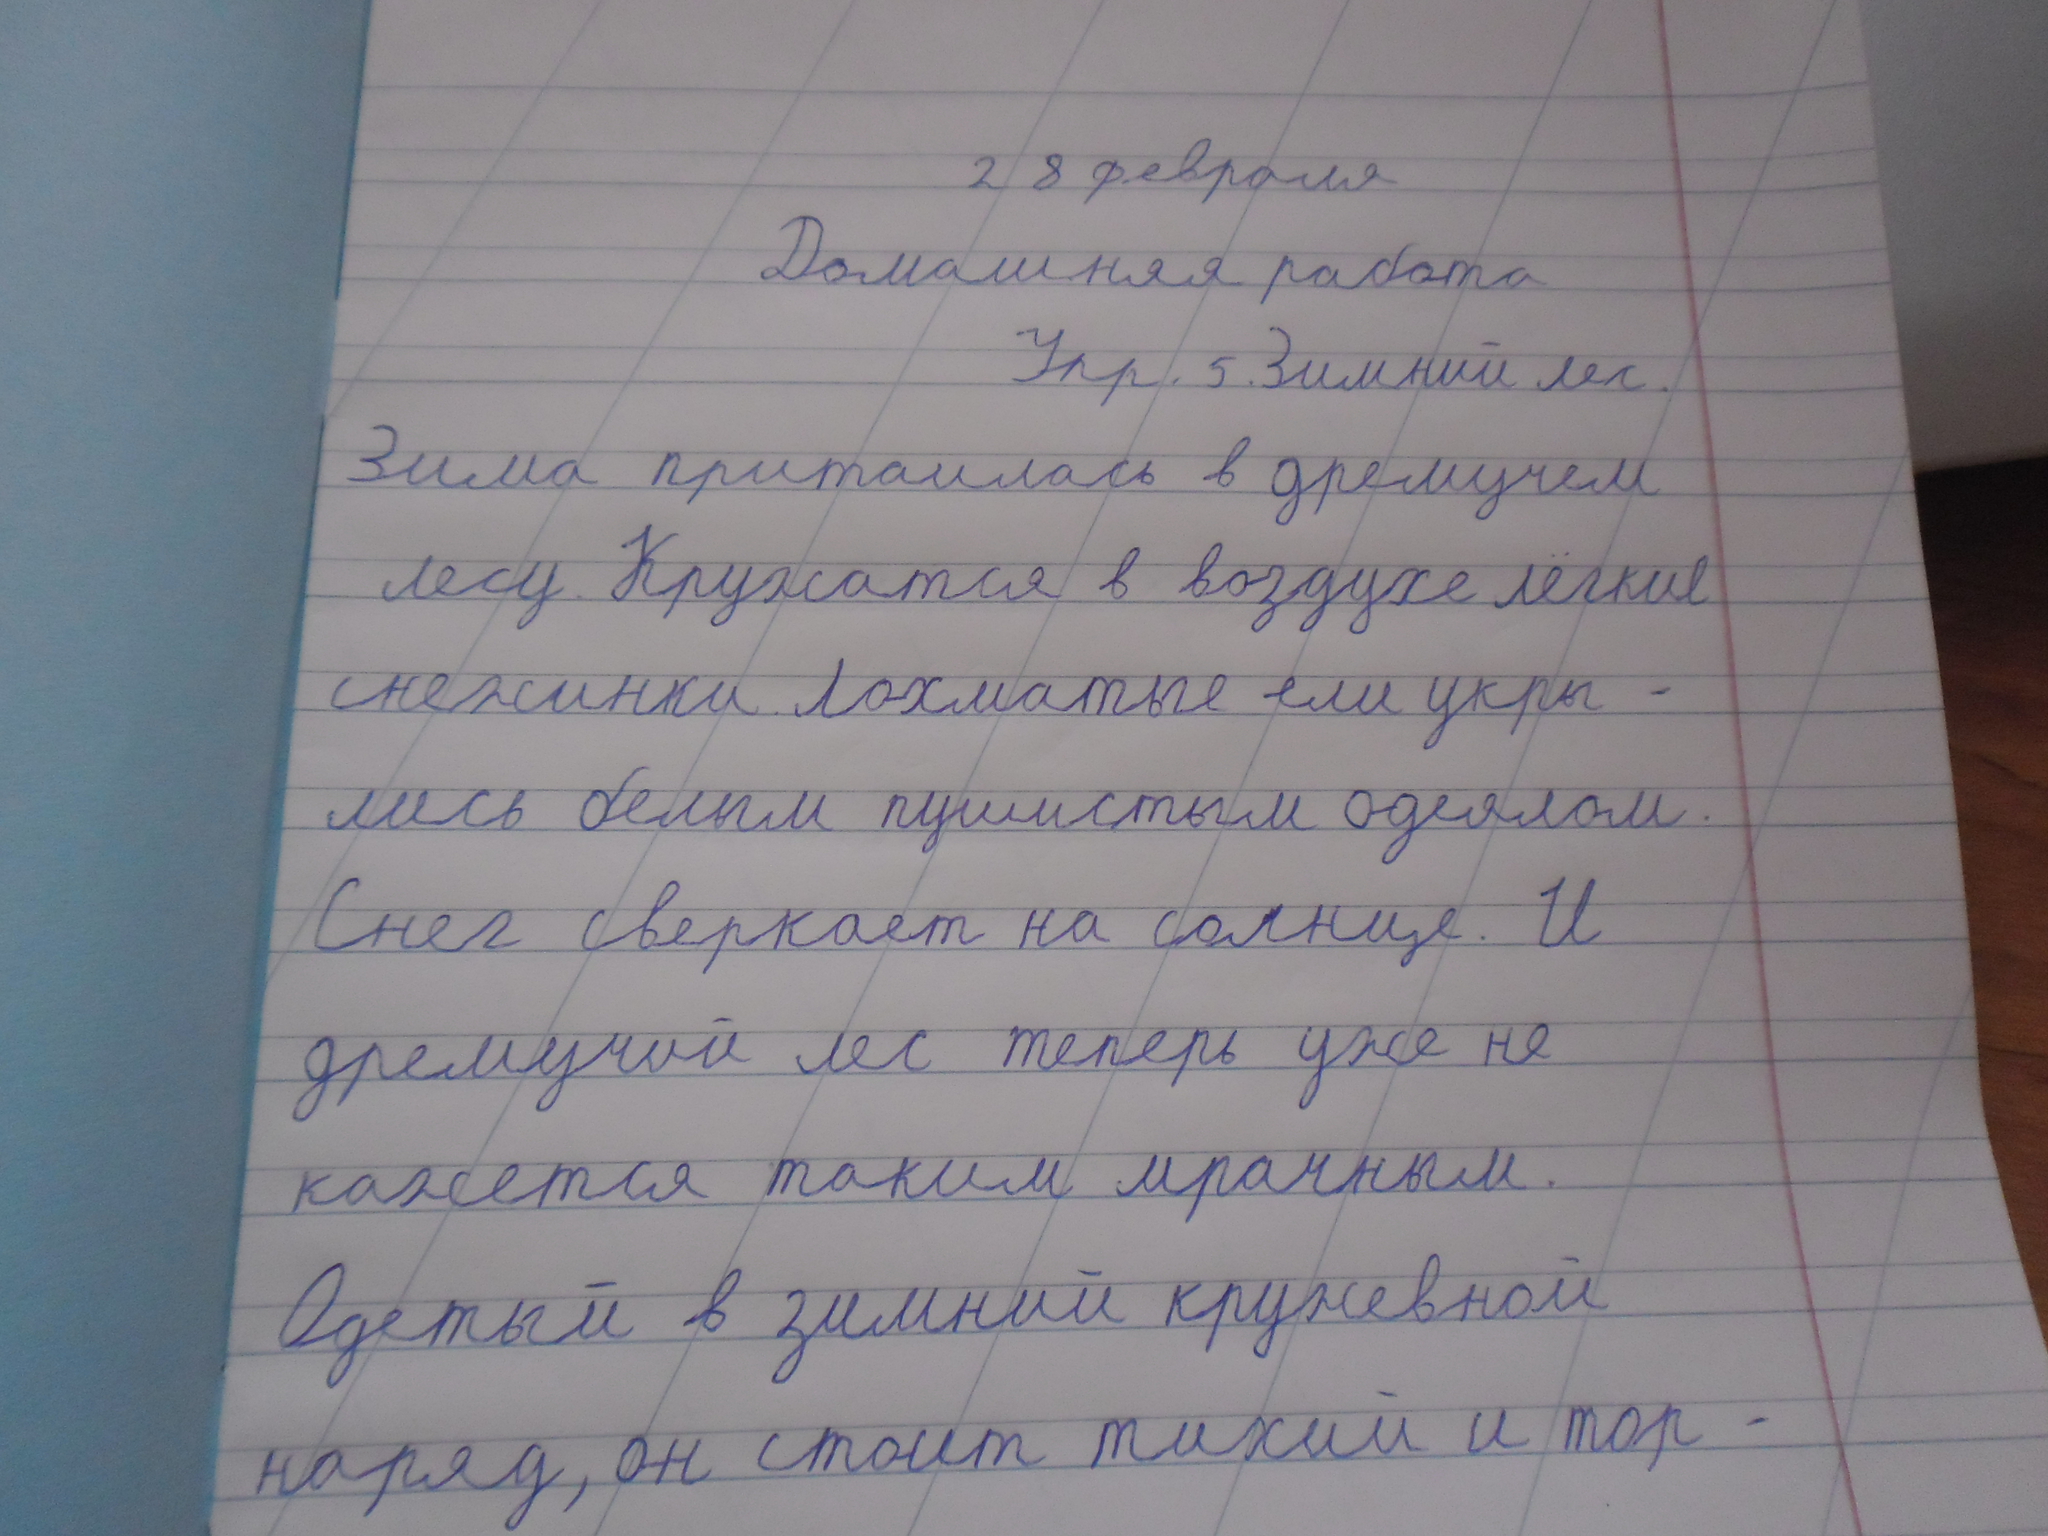 28 февраля
Домашняя работа
Упр. 5. Зимний лес.
Зима притаилась в дремучем
лесу. Кружатся в воздухе лёгкие
снежинки. Лохматые ели укры -
лись белым пушистым одеялом.
Снег сверкает на солнце. И
дремучий лес теперь уже не
кажется таким мрачным.
Одетый в зимний кружевной
наряд, он стоит тихий и тор -